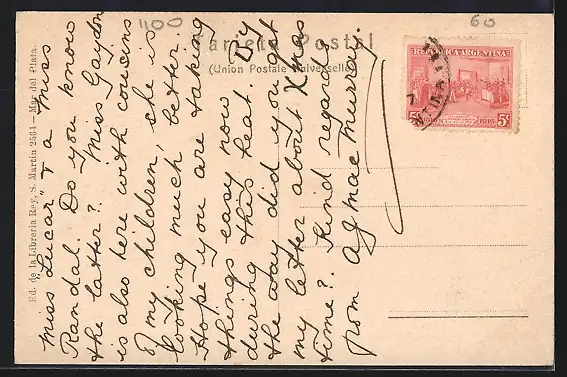 1400
60
Tarjeta Postal
(Union Postale Universelle)
REPUBLICA ARGENTINA
5c 1816 1916 5c
Ed. de la Libreria Rey, S. Martin 2564 - Mar del Plata.
Miss "Lucar" & a Miss
Randal. Do you know
the latter? Miss Gaydon
is also here with cousins
of my children, she is
looking much better.
Hope you are taking
things easy now
during this heat. By
the way did you get
my letter about Xmas
time?. Kind regards
from AG Mac Murray.